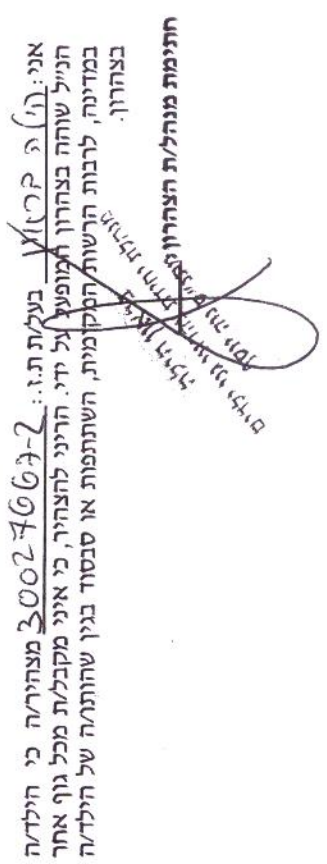 אני: בעל/ת ת.ז.: 30027667-2 מצהיר/ה כי הילד/ה
הנ״ל שוהה בצהרון המופעל על ידי. הריני להצהיר, כי איני מקבל/ת מכל גוף אחר
במדינה, לרבות הרשות המקומית, השתתפות או סבסוד בגין שהותו/ה של הילד/ה
בצהרון.
חתימת מנהל/ת הצהרון